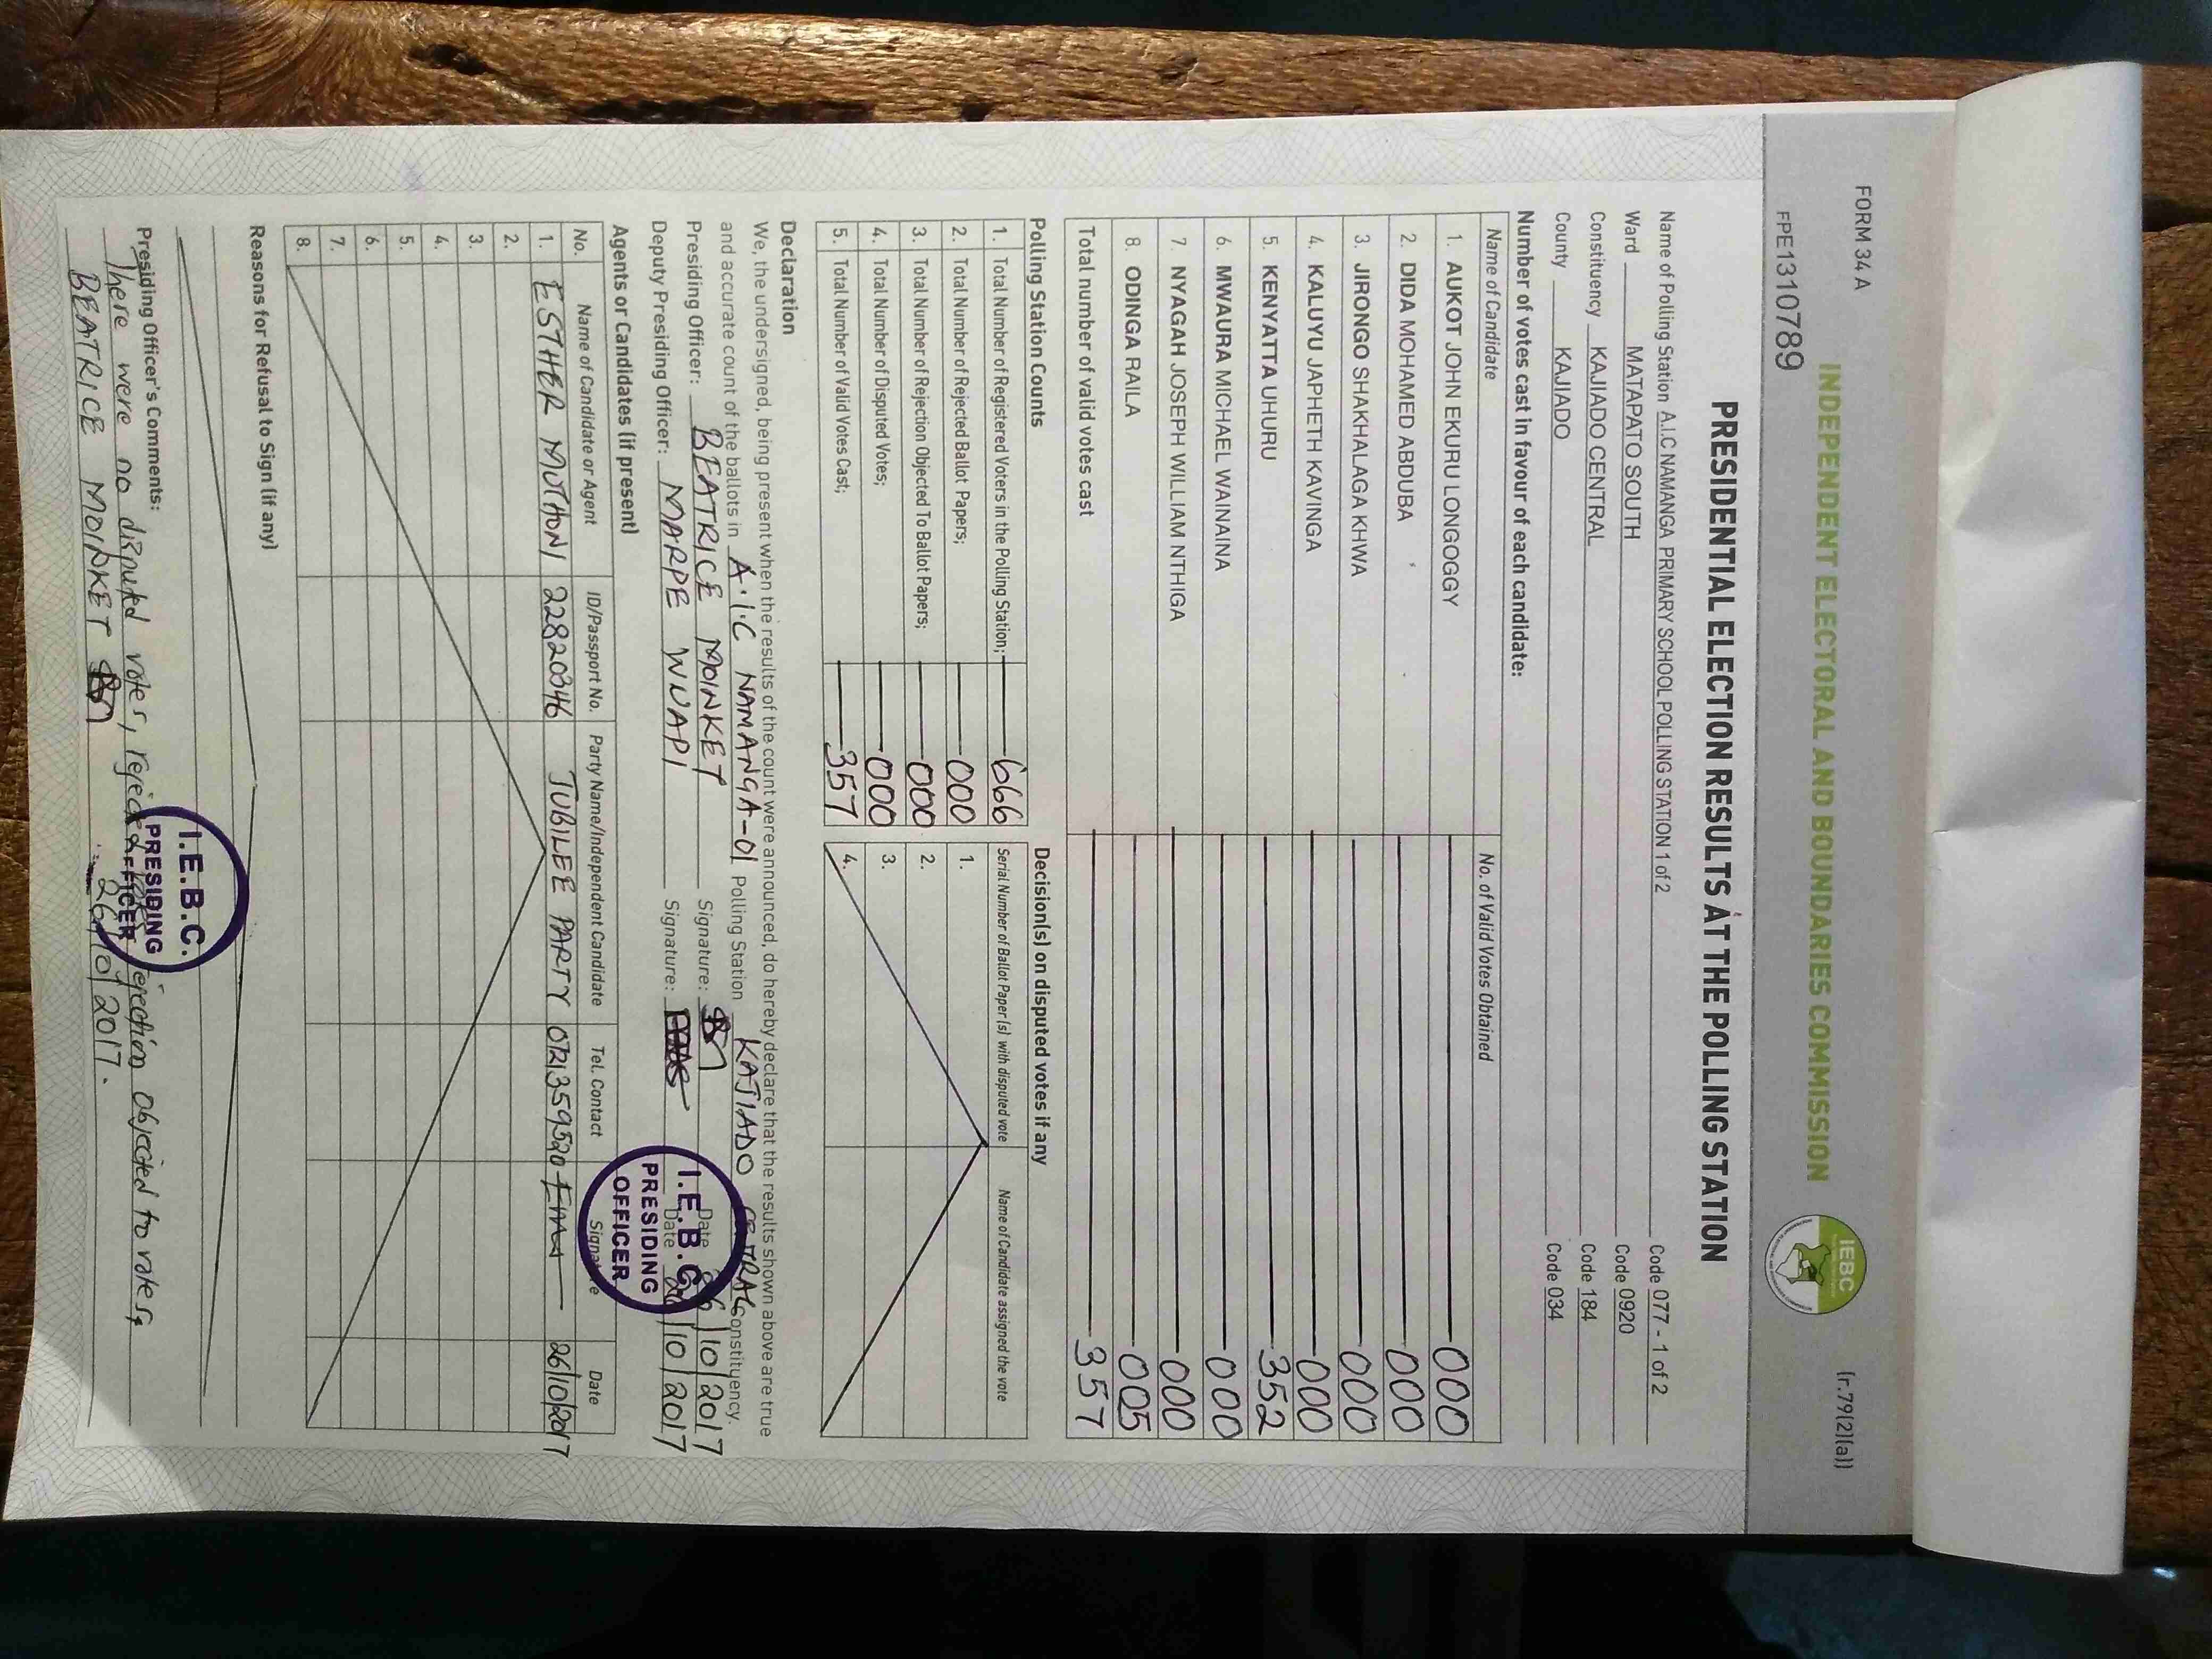 FORM 34 A
(r.79(2)(a))
INDEPENDENT ELECTORAL AND BOUNDARIES COMMISSION
IEBC
FPE1310789
PRESIDENTIAL ELECTION RESULTS AT THE POLLING STATION
Name of Polling Station A.I.C NAMANGA PRIMARY SCHOOL POLLING STATION 1 of 2 Code 077 - 1 of 2
Ward MATAPATO SOUTH Code 0920
Constituency KAJIADO CENTRAL Code 184
County KAJIADO Code 034
Number of votes cast in favour of each candidate:
Name of Candidate No. of Valid Votes Obtained
1. AUKOT JOHN EKURU LONGOGGY 000
2. DIDA MOHAMED ABDUBA 000
3. JIRONGO SHAKHALAGA KHWA 000
4. KALUYU JAPHETH KAVINGA 000
5. KENYATTA UHURU 352
6. MWAURA MICHAEL WAINAINA 000
7. NYAGAH JOSEPH WILLIAM NTHIGA 000
8. ODINGA RAILA 005
Total number of valid votes cast 357
Polling Station Counts
1. Total Number of Registered Voters in the Polling Station; 666
2. Total Number of Rejected Ballot Papers; 000
3. Total Number of Rejection Objected To Ballot Papers; 000
4. Total Number of Disputed Votes; 000
5. Total Number of Valid Votes Cast; 357
Decision(s) on disputed votes if any
Serial Number of Ballot Paper (s) with disputed vote Name of Candidate assigned the vote
1.
2.
3.
4.
Declaration
We, the undersigned, being present when the results of the count were announced, do hereby declare that the results shown above are true
and accurate count of the ballots in A.I.C NAMANGA-01 Polling Station KAJIADO CENTRAL Constituency.
Presiding Officer: BEATRICE MOINKET Signature: Date 26/10/2017
Deputy Presiding Officer: MARPE WUAPI Signature: Date 26/10/2017
I.E.B.C.
PRESIDING
OFFICER
Agents or Candidates (if present)
No. Name of Candidate or Agent ID/Passport No. Party Name/Independent Candidate Tel. Contact Signature Date
1. ESTHER MUTHONI 22820346 JUBILEE PARTY 0721359520 26/10/2017
2.
3.
4.
5.
6.
7.
8.
Reasons for Refusal to Sign (if any)
Presiding Officer's Comments:
There were no disputed votes, rejection objected to votes,
BEATRICE MOINKET 26/10/2017.
I.E.B.C.
PRESIDING
OFFICER